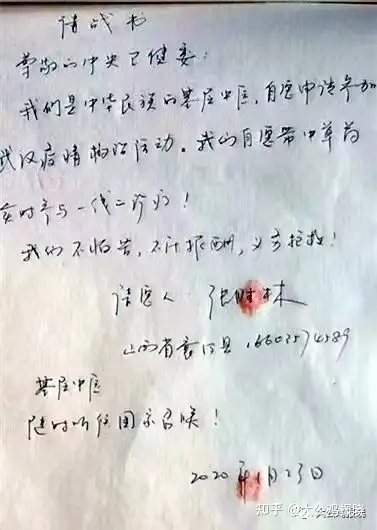 请战书
尊敬的中央卫健委:
我们是中华民族的基层中医,自愿申请参加
武汉疫情防治活动。我们自愿带中草药
实时参与一线诊疗!
我们不怕苦,不计报酬,义务抢救!
请愿人 张时林
山西省襄汾县 16603574589
基层中医
随时听从国家召唤!
2020年1月23日
知乎